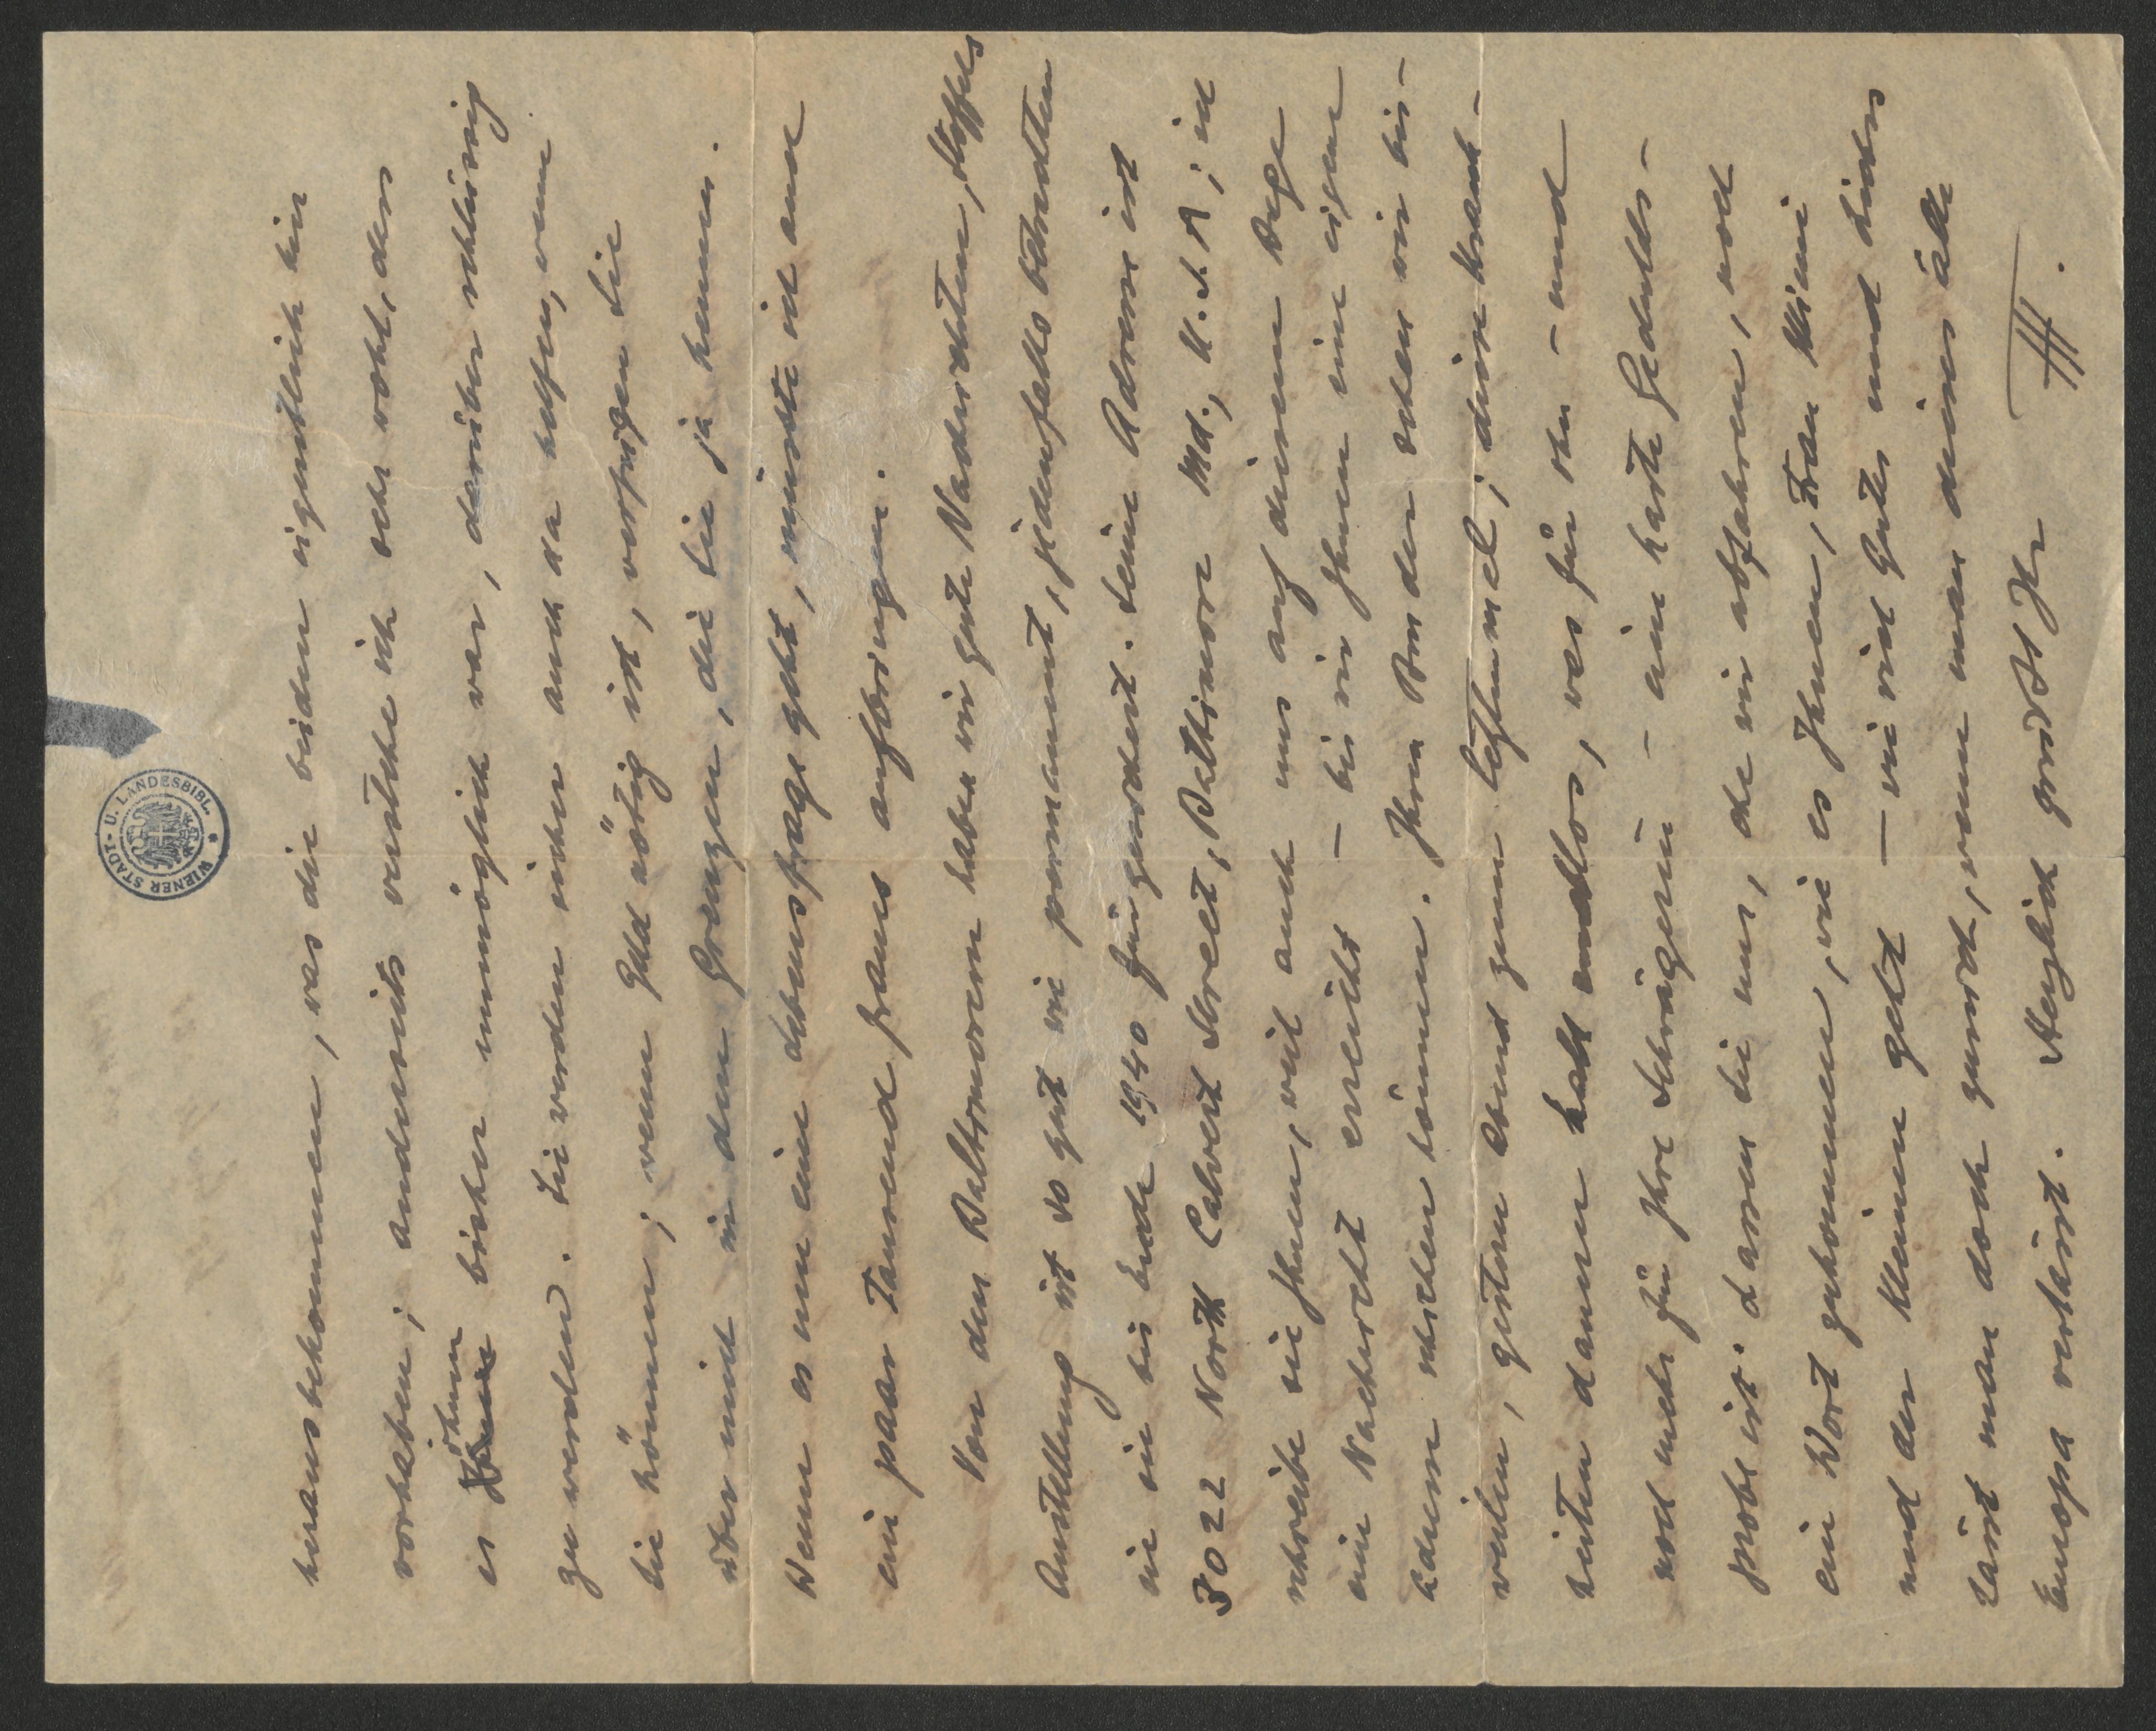 herausbekommen, was die beiden eigentlich hier
vorhaben; anderseits verstehe ich sehr wohl, dass
es Ihnen bisher unmöglich war, darüber schlüssig
zu werden. Sie werden sicher auch da helfen, wenn
Sie können; wenn Geld nötig ist, verfügen Sie
über mich in den Grenzen, die Sie ja kennen.
Wenn es um eine Lebensfrage geht, müsste ich auch
ein paar Tausend francs aufbringen.
Von den Baltimorern haben wir gute Nachrichten,
Anstellung ist so gut wie permanent, jedenfalls behalten
sie sie bis Ende 1940 . Seine Adresse ist
3022 North Calvert Street, Baltimore Md., U.S.A; ich
schreibe sie Ihnen, weil auch uns auf diesem Wege
eine Nachricht erreicht – bis wir Ihnen eine eigene
Adresse schreiben können. Ihren Bruder sehen wir bis-
weilen, gestern Abend zum ; diese
dauern halt endlos, was für ihn – und
noch mehr für Ihre Schwägerin – eine harte Gedulds-
probe ist. Lassen Sie uns, ehe wir abfahren, noch
ein Wort zukommen, wie es Ihnen, Frau Mimi
und der Kleinen geht – wie viel Gutes und Liebes
lässt man doch zurück, wenn man dieses alte
Europa verlässt. Herzlich grüsst Ihr
WIENER STADT- U. LANDESBIBL.